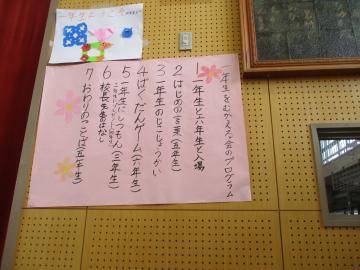 一年生をむかえる会のプログラム
1 一年生と六年生と入場
2 はじめの言葉(五年生)
3 一年生のじこしょうかい
4 ばくだんゲーム(六年生)
5 一年生にしつもん(三年生)
6 校長先生のはなし
7 おわりのことば(五年生)